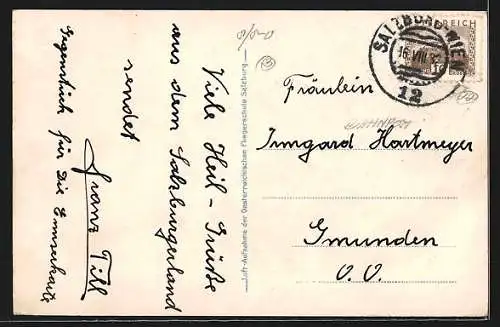 Viele Heil-Grüße
aus dem Salzburgerland
sendet
Franz Till
Gegenstück für die
Luft-Aufnahme der Oesterreichischen Fliegerschule Salzburg
SALZBURG-WIEN
16.VIII.3
12
REICH
Fräulein
Irmgard Hartmeyer
Gmunden
O. O.